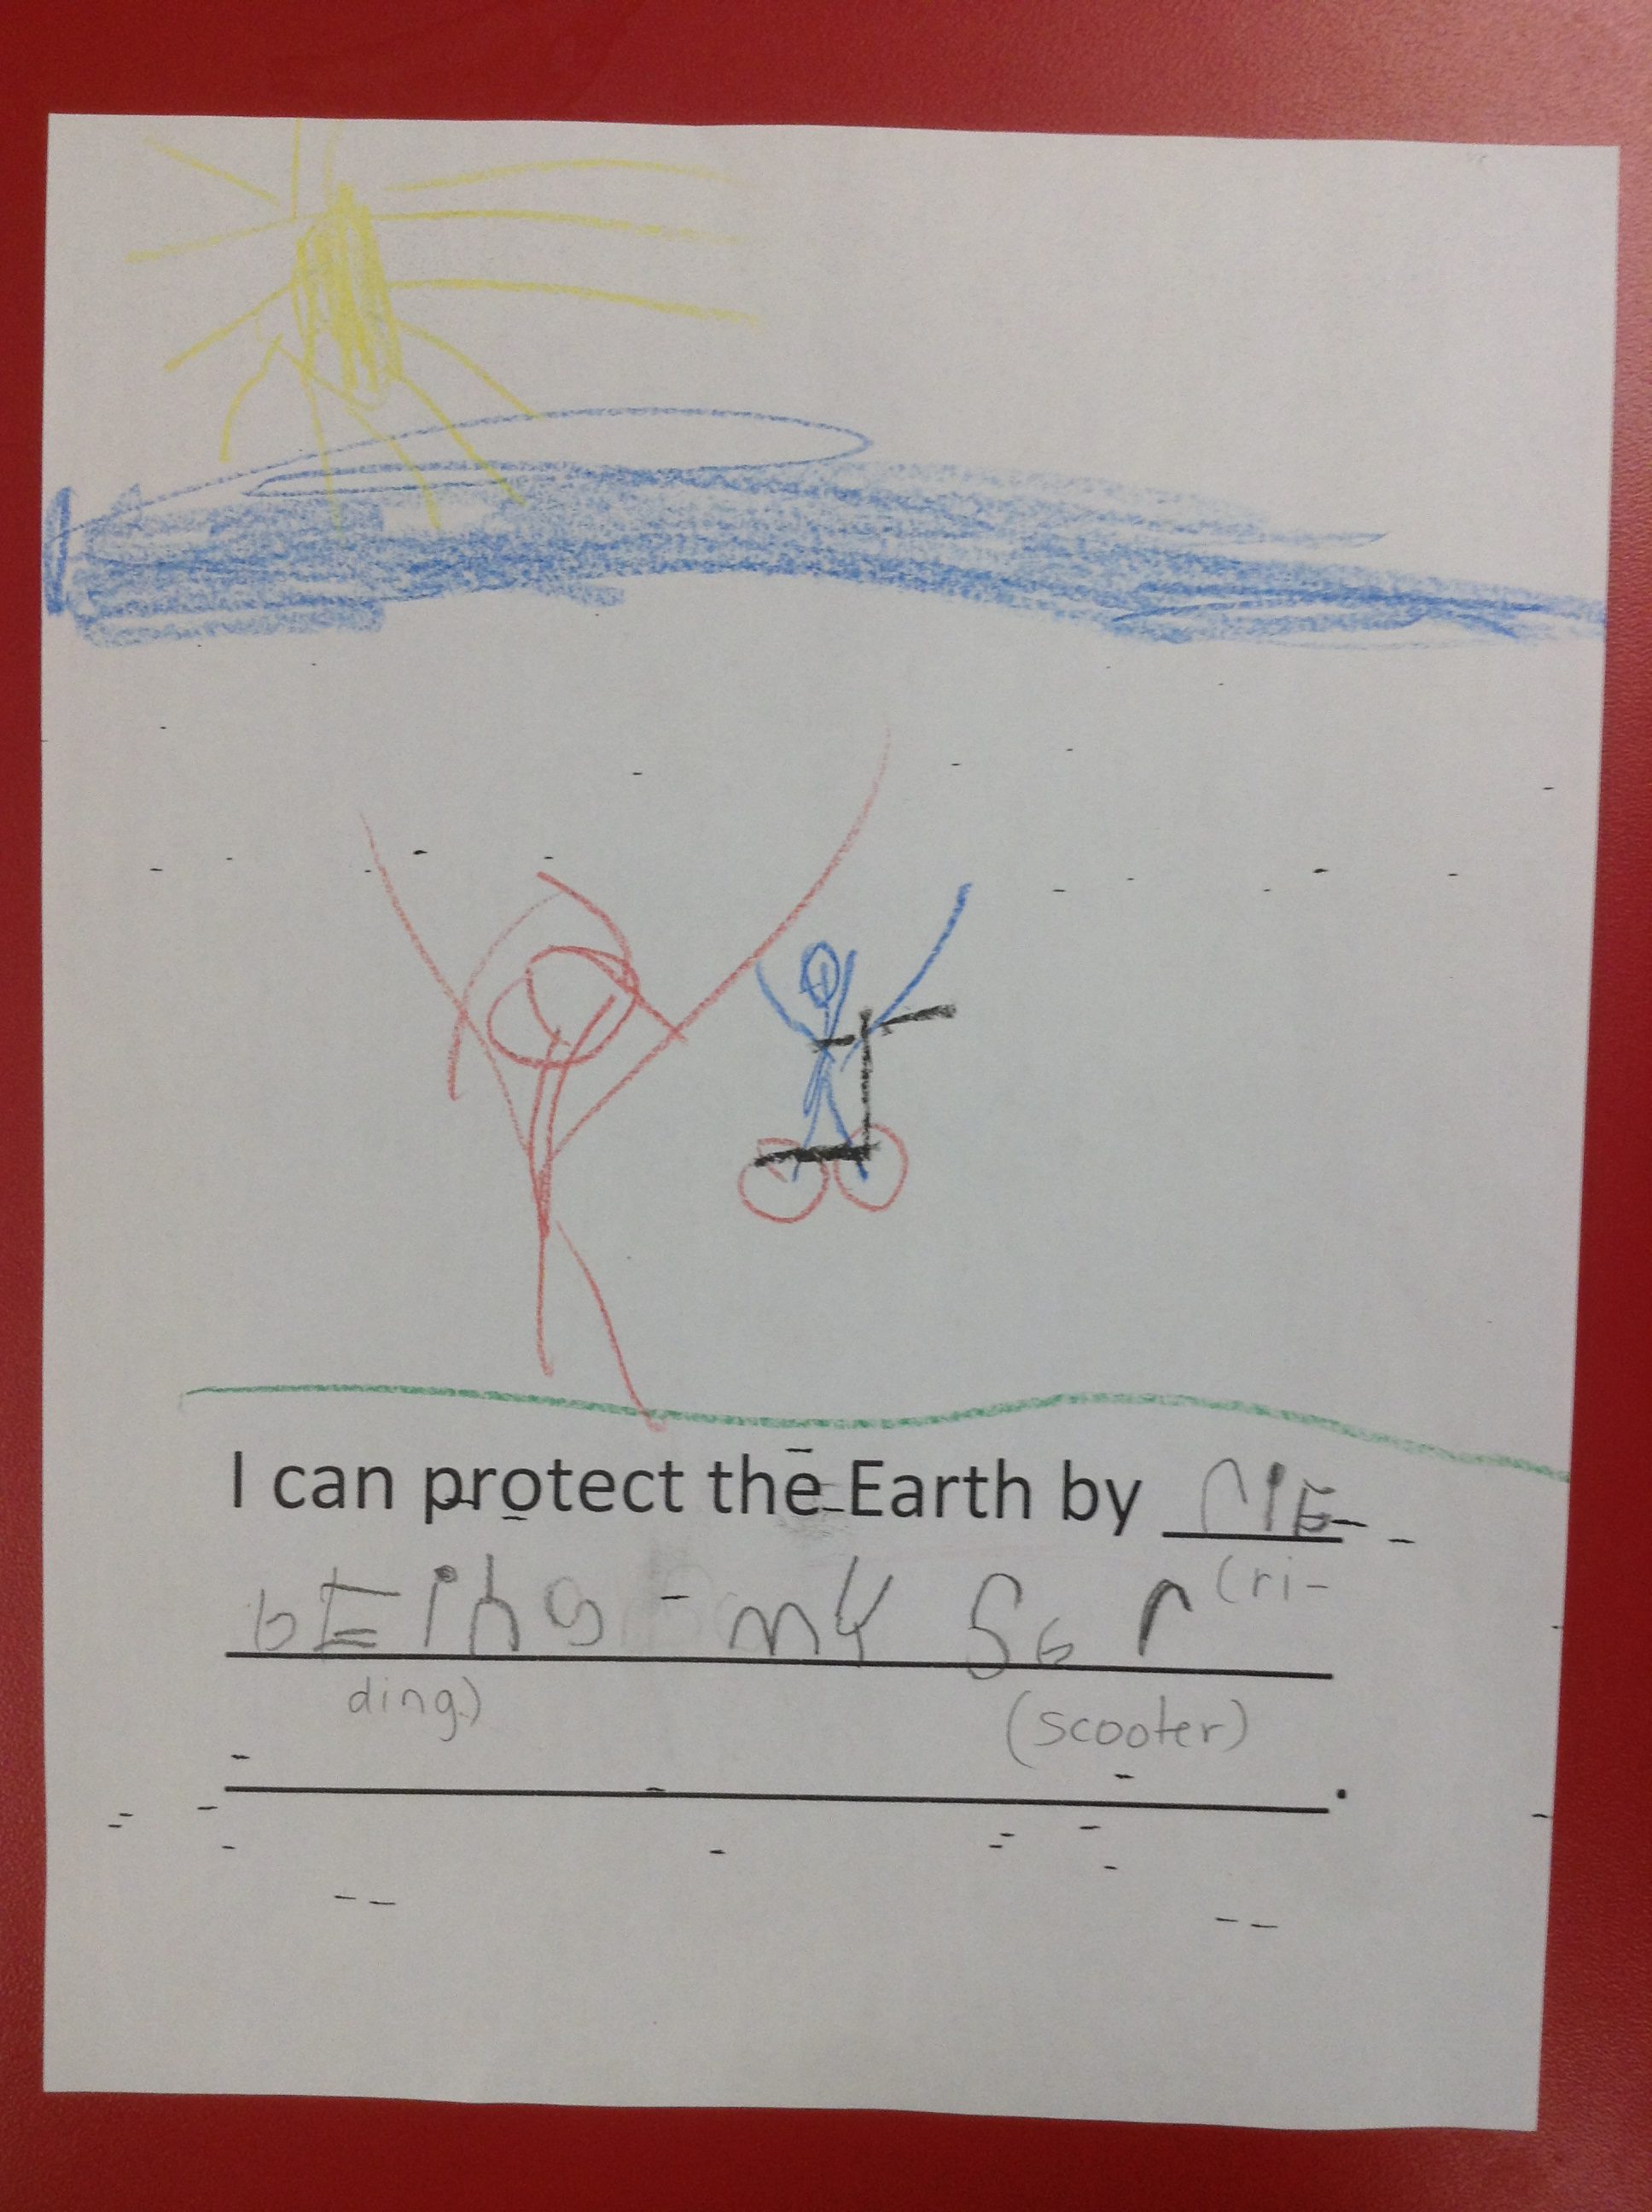 I can protect the Earth by rIE
(ri-
bEing my Sc r
ding)
(scooter)
.